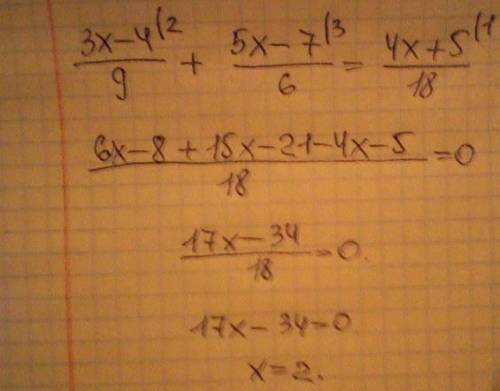 (3x-4)/9 ⁽² + (5x-7)/6 ⁽³ = (4x+5)/18 ⁽¹
(6x-8+15x-21-4x-5)/18 = 0
(17x-34)/18 = 0.
17x-34=0
x=2.